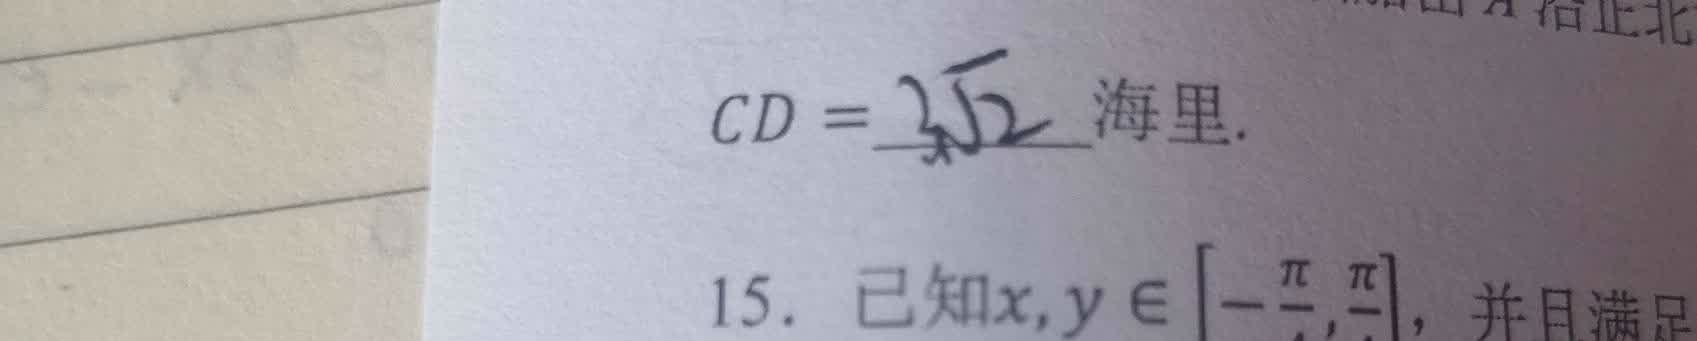 A 沿正北
CD = 3√2 海里.
15. 已知x, y ∈ [-π/4, π/4], 并且满足